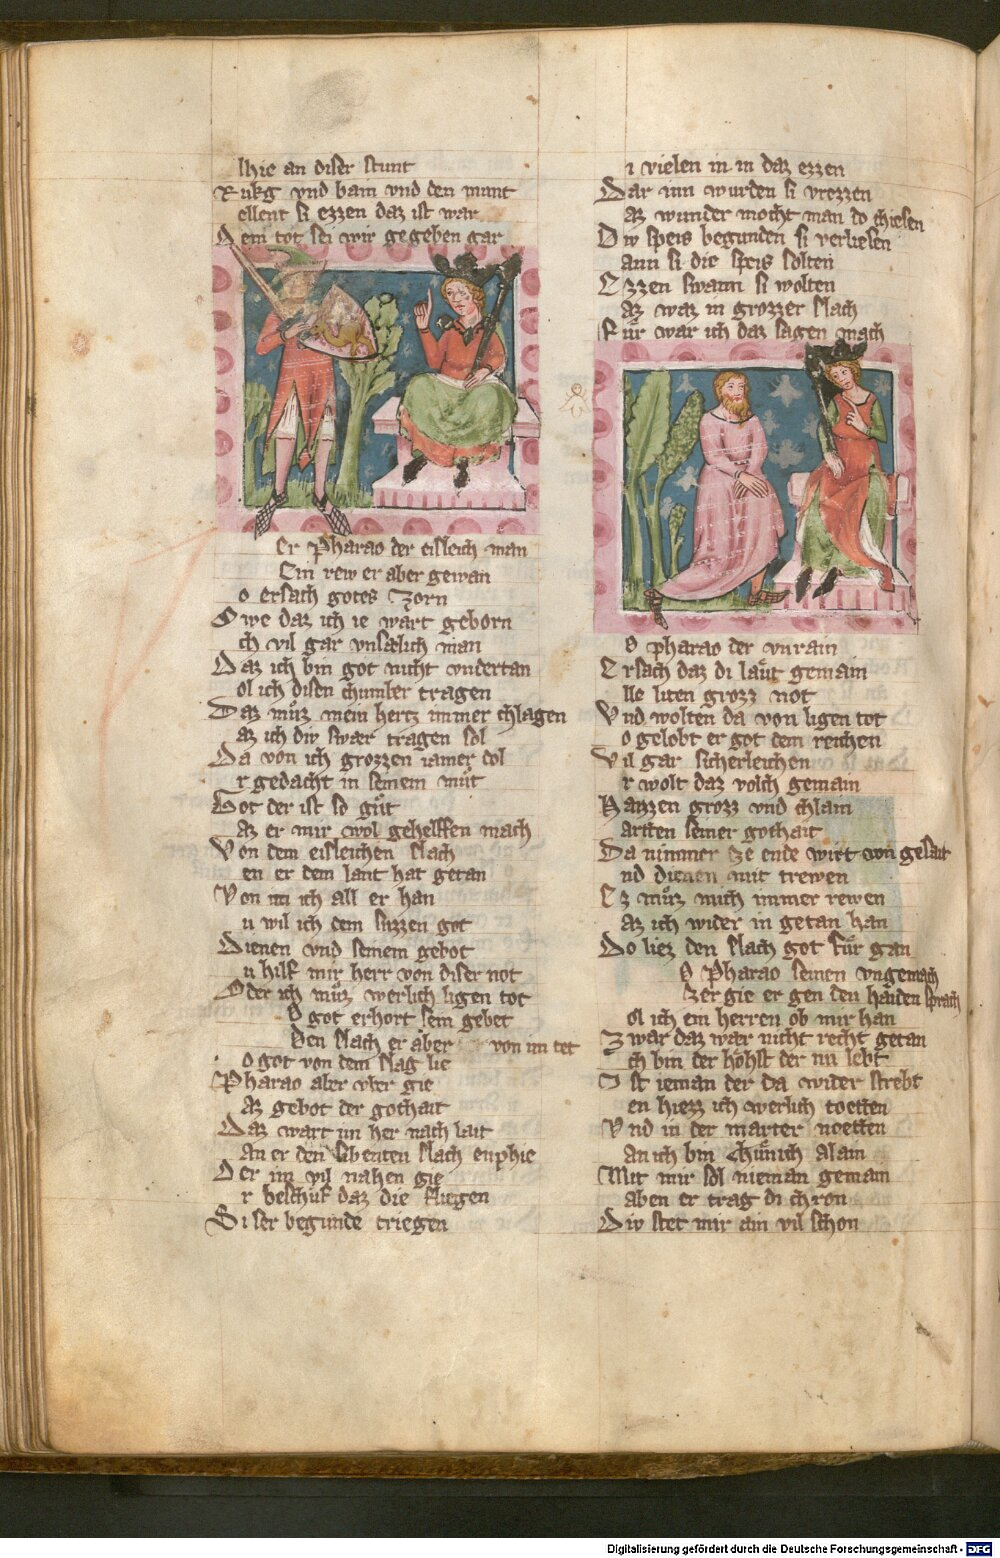 lhie an diser stunt
Rukg vnd bain vnd den munt
ellent si ezzen daz ist war
Dem tot sei wir gegeben gar
er Pharao der eisleich man
Ein rew er aber gewan
o ersach gotes zorn
Owe daz ich ie wart geborn
ch vil gar vnsælich man
Daz ich bin got nicht vndertan
ol ich disen chumber tragen
Daz muͤz mein hertz immer chlagen
az ich div swær tragen sol
Da von ich grozzen iamer dol
r gedacht in seinem muͤt
Got der ist so guͤt
az er mir wol gehelffen mach
Von dem eisleichen slach
en er dem lant hat getan
Von im ich all er han
u wil ich dem suzzen got
Dienen vnd seinem gebot
u hilf mir herr von diser not
Oder ich muͤz werlich ligen tot
O got erhort sein gebet
Den slach er aber von im tet
o got von dem slag lie
Pharao aber vber gie
az gebot der gothait
Daz wart im her nach lait
an er den sibenten slach enphie
Der im vil nahen gie
r beschuf daz die fliegen
Diser begunde triegen
i vielen in in daz ezzen
Dar inn wurden si vrezzen
az wunder mocht man do chiesen
Div speis begunden si verliesen
ann si die speis solten
Ezzen swann si wolten
az waz in grozzer slach
Fuͤr war ich daz sagen mach
o pharao der vnrain
Ersach daz di laͤut gemain
lle liten grozz not
Vnd wolten da von ligen tot
o gelobt er got dem reichen
Vil gar sicherleichen
r wolt daz volch gemain
Hayzen grozz vnd chlain
artten seiner gothait
Da nimmer ze ende wirt von gesait
nd dienen mit trewen
Ez muͤz mich immer rewen
az ich wider in getan han
Do liez den slach got fuͤr gan
o Pharao seinen vngemach
zer gie er gen den haiden sprach
ol ich ein herren ob mir han
Zwar daz wær nicht recht getan
ch bin der hohst der nu lebt
Ist ieman der da wider strebt
en hiezz ich werlich toetten
Vnd in der marter noetten
an ich bin chuͤnich alain
Mit mir sol nieman gemain
aben er trag di chron
Div stet mir ain vil schon
Digitalisierung gefördert durch die Deutsche Forschungsgemeinschaft - DFG